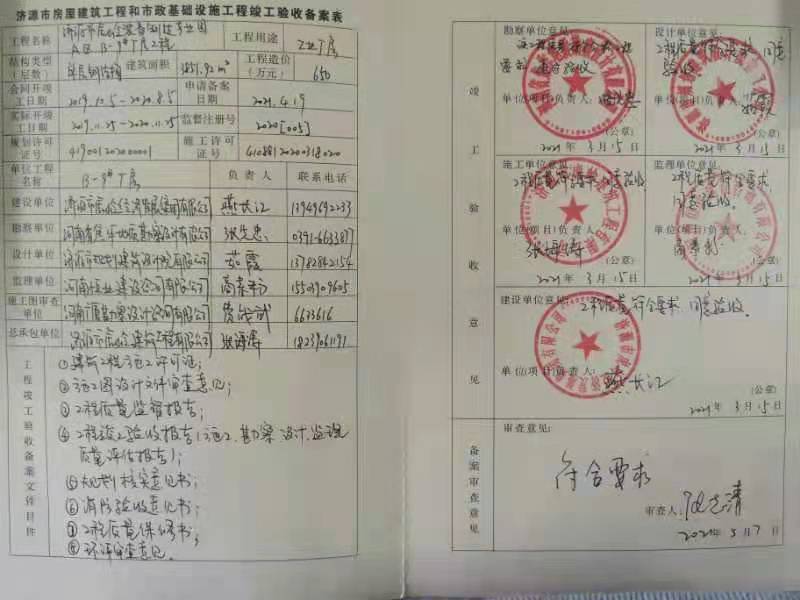 济源市房屋建筑工程和市政基础设施工程竣工验收备案表
工程名称
B-3#厂房工程
工程用途
工业厂房
结构类型(层数)
单层钢结构
建筑面积
工程造价(万元)
650
合同开竣工日期
2019.10.5-2020.8.5
申请备案日期
2021.4.19
实际开竣工日期
2019.11.25-2020.11.25
监督注册号
2020[005]
规划许可证号
419001202000001
施工许可证号
41088120200318020
单位工程名称
B-3#厂房
负责人
联系电话
建设单位
燕长江
13949692233
勘察单位
0391-6633877
设计单位
济源市规划建筑设计院有限公司
范霞
13782842154
监理单位
河南恒业建设咨询有限公司
15503909605
施工图审查单位
6633616
总承包单位
张海涛
18239061191
工程竣工验收备案文件目件
①建筑工程施工许可证;
②施工图设计文件审查意见;
③工程质量监督报告;
④工程竣工验收报告(施工、勘察、设计、监理
质量评估报告);
⑤规划核实意见书;
⑥消防验收意见书;
⑦工程质量保修书;
⑧环评审查意见
竣工验收意见
勘察单位意见:
要求 通过验收
单位(项目)负责人:
(公章)
2021年3月15日
设计单位意见:
工程质量符合要求 同意
验收
单位(项目)负责人:
范霞
(公章)
2021年3月15日
施工单位意见:
工程质量符合要求 同意验收
单位(项目)负责人:
张海涛
(公章)
2021年3月15日
监理单位意见:
工程质量符合要求
同意验收
单位(项目)负责人:
(公章)
2021年3月15日
建设单位意见:
工程质量符合要求 同意验收
单位(项目)负责人:
燕长江
(公章)
2021年3月15日
备案审查意见
审查意见:
符合要求
审查人:
2021年5月7日